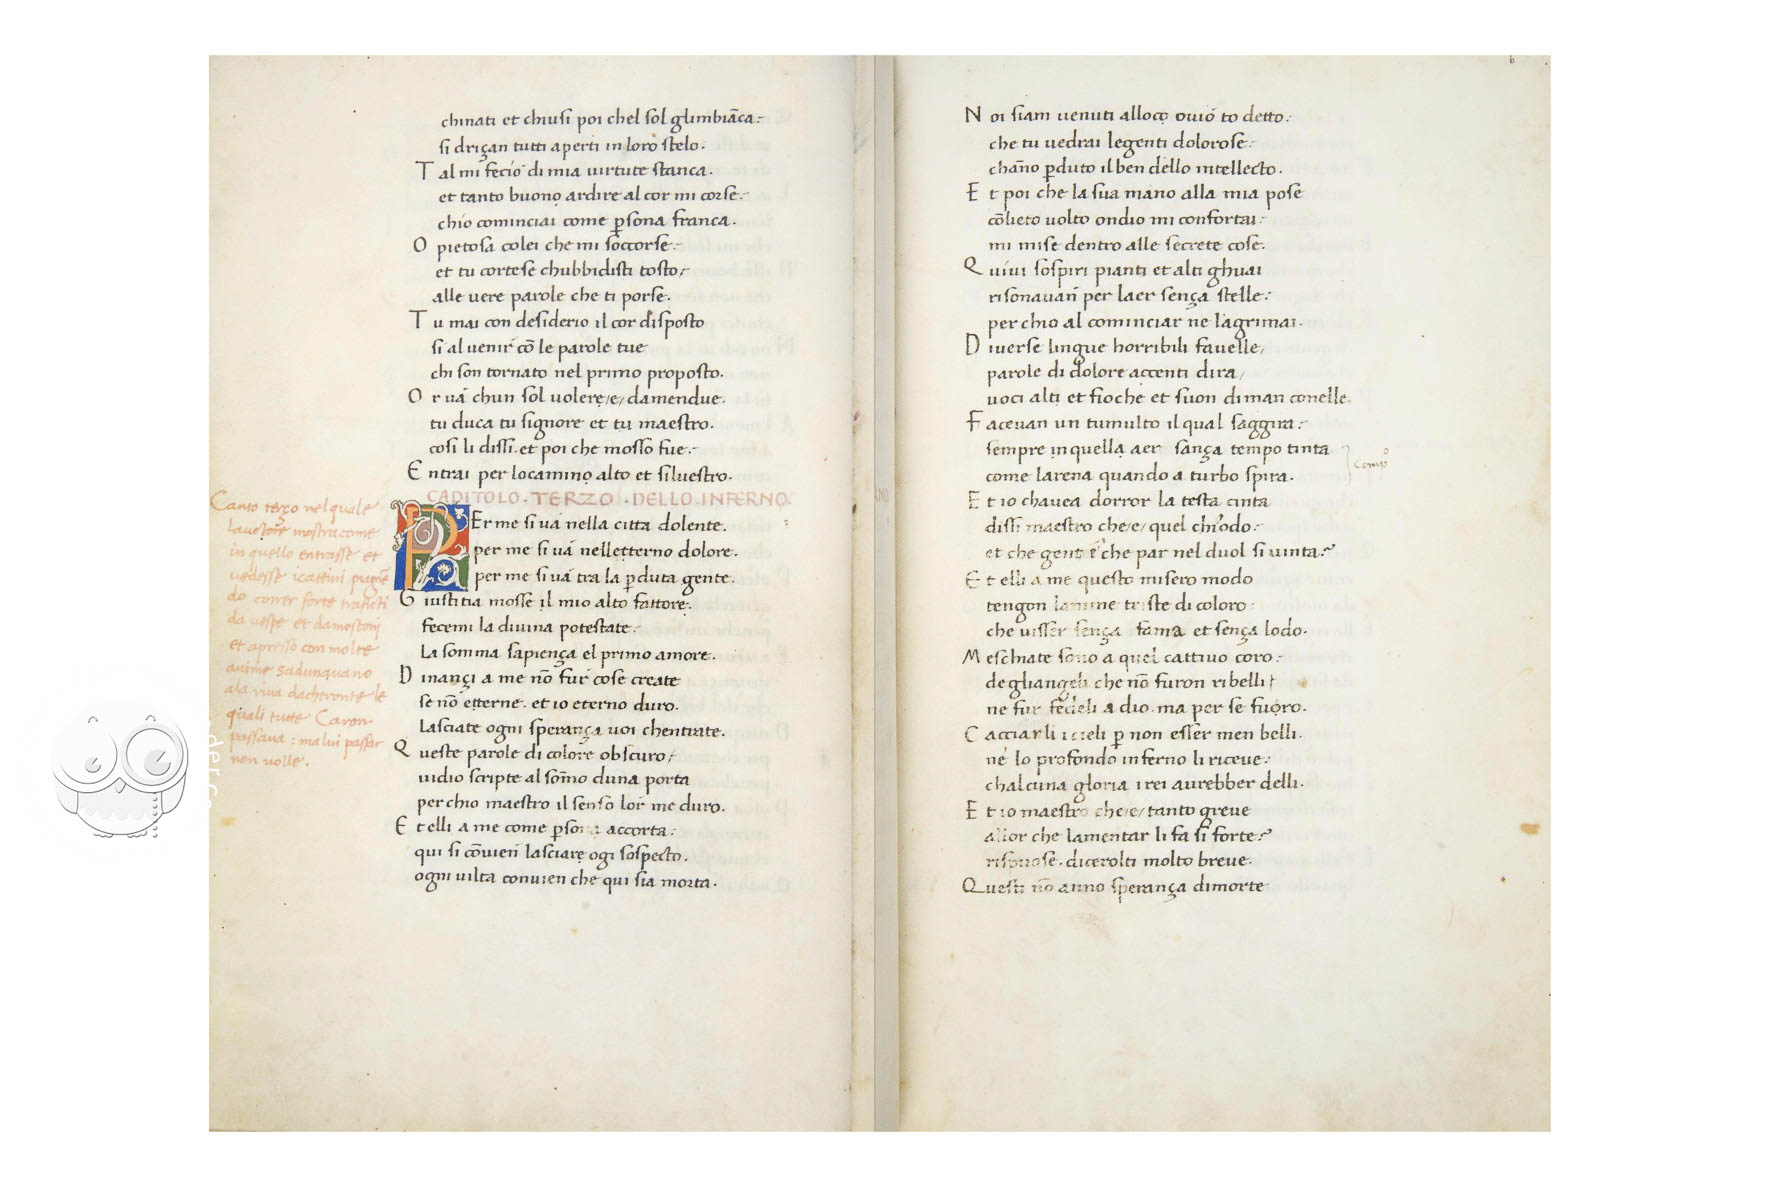 chinati et chiusi poi chel sol glimbiāca:
si driçan tutti aperti in loro stelo.
T al mi fecio di mia uirtute stanca.
et tanto buono ardire al cor mi corse:
chio cominciai come ꝑsona franca.
O pietosa colei che mi soccorse:
et tu cortese chubbidisti tosto:
alle uere parole che ti porse.
T u mai con desiderio il cor disposto
si al uenir cō le parole tue
chi son tornato nel primo proposto.
O r uà chun sol uolere/e/ damendue.
tu duca tu signore et tu maestro.
cosi li dissi. et poi che mosso fue:
E ntrai per locamino alto et siluestro.
CAPITOLO . TERZO . DELLO . INFERNO.
PEr me si uà nella citta dolente.
per me si uà nelletterno dolore.
per me si uà tra la ꝑduta gente.
G iustitia mosse il mio alto fattore.
fecemi la diuina potestate:
La somma sapiença el primo amore.
D inançi a me nō fur cose create
se nō etterne. et io eterno duro.
Lasciate ogni sperança uoi chentrate.
Q ueste parole di colore obscuro/
uidio scripte al sōmo duna porta
per chio maestro il senso lor me duro.
E t elli a me come ꝑsona accorta:
qui si cōuien lasciare ogi sospecto.
ogni uilta conuien che qui sia morta.
Canto terzo nel quale
lauctore mostra come
in quello entrasse et
uedesse i cattiui pugnē
do correr forte trafitti
da uespe et damosconi
et apresso con molte
anime sadunauano
ala riua dacheronte le
quali tutte Caron
passaua : ma lui passar
non uolle .
6
N oi siam uenuti alloco ouiò to detto:
che tu uedrai legenti dolorose:
chāno ꝑduto il ben dello intellecto.
E t poi che la sua mano alla mia pose
cōlieto uolto ondio mi confortai:
mi mise dentro alle secrete cose.
Q uiui sospiri pianti et alti ghuai
risonauan per laer sença stelle:
per chio al cominciar ne lagrimai.
D iuerse lingue horribili fauelle/
parole di dolore accenti dira/
uoci alti et fioche et suon di man conelle.
F aceuan un tumulto il qual saggira:
sempre in quella aer sança tempo tinta
come larena quando a turbo spira.
compº
E t io chauea dorror la testa cinta
dissi maestro che/e/ quel chiodo:
et che gent è che par nel duol si uinta?
E t elli a me questo misero modo
tengon lanime triste di coloro:
che uisser sença fama et sença lodo.
M eschiate sono a quel cattiuo coro:
degliangeli che nō furon ribelli/
ne fur fedeli a dio. ma per se fuoro.
C acciarli i cieli ꝑ non esser men belli.
ne lo profondo inferno li riceue:
chalcuna gloria i rei aurebber delli.
E t io maestro che/e/ tanto greue
allor che lamentar li fa si forte?
rispuose. dicerolti molto breue.
Q uesti nō anno sperança dimorte